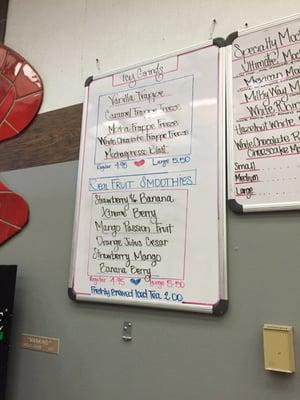 Icy Grinds
Vanilla Frappe
Caramel Frappe Freeze
Mocha Frappe Freeze
White Chocolate Frappe Freeze
Mochaspresso Blast
Regular 4.95 Large 5.50
Real FRUIT SMOOTHIES
Strawberry & Banana
Xtreme Berry
Mango Passion Fruit
Orange Julius Cesar
Strawberry Mango
Banana Berry
Regular 4.95 Large 5.50
Freshly Brewed Iced Tea 2.00
Specialty
Ultimate
Mexican
Milky Way
White
Hazelnut White
White Chocolate
Cheesecake
Small
Medium
Large
"WARNING"